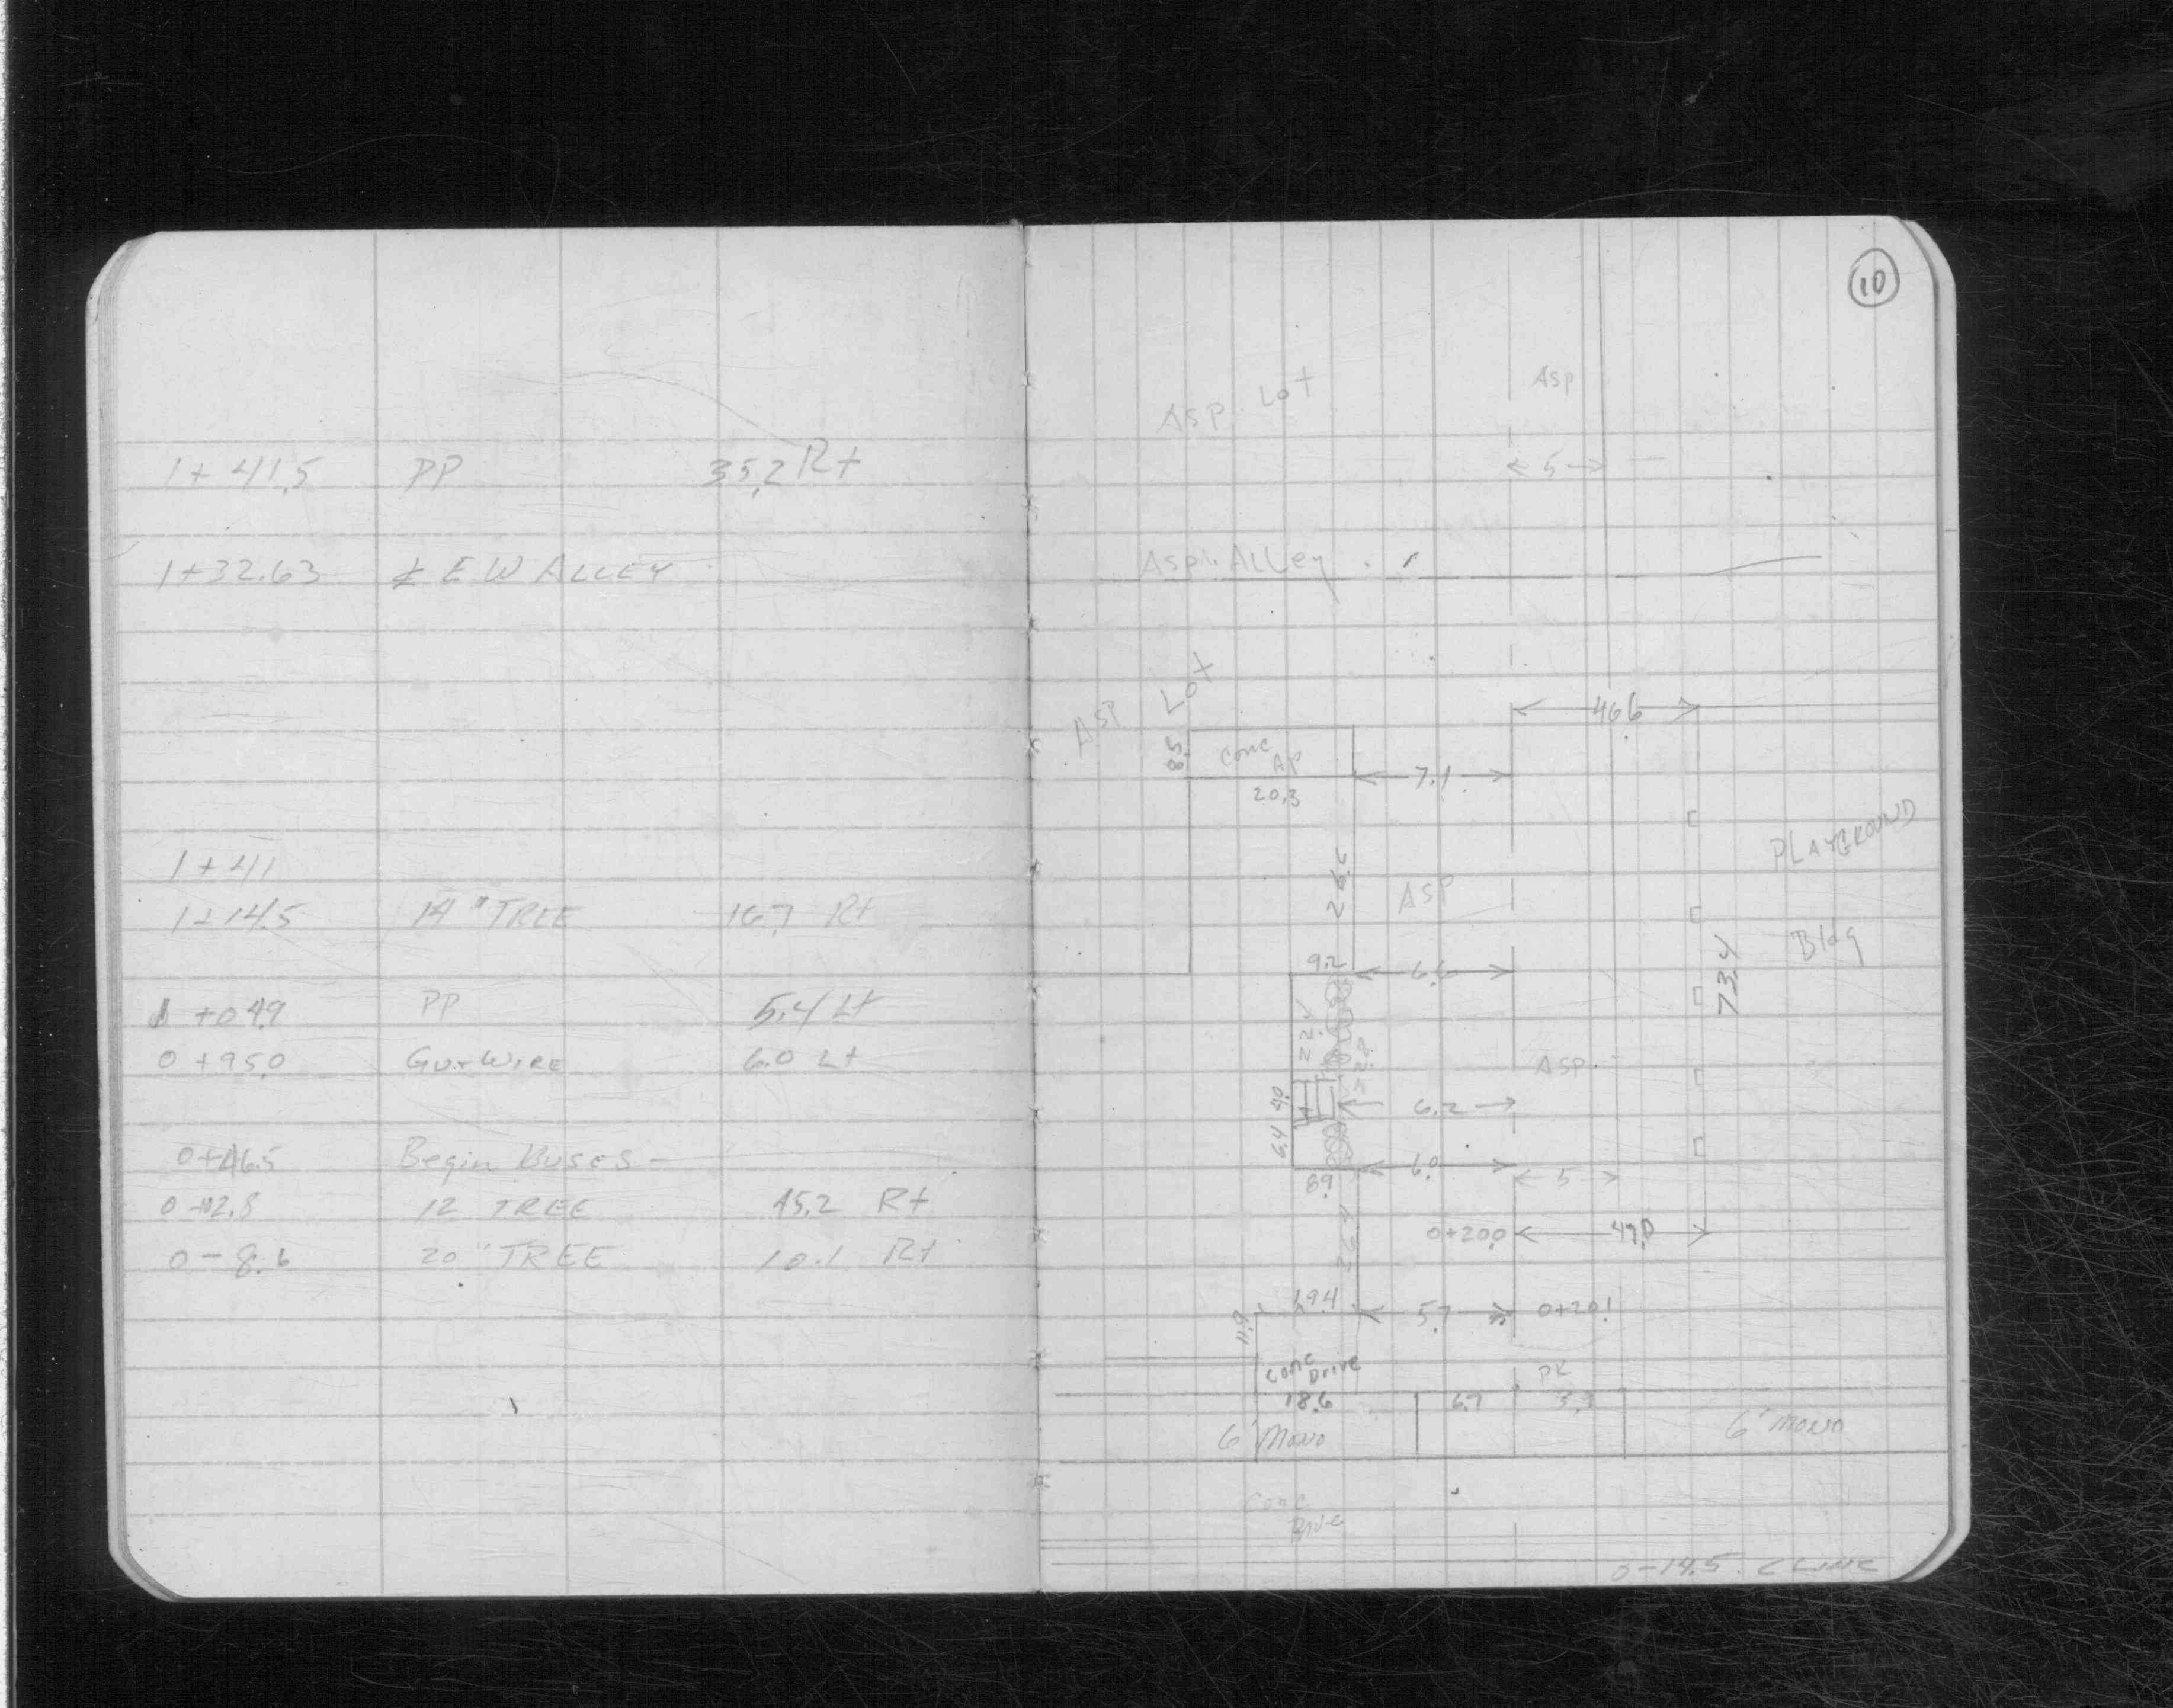 1+41.5 PP 35.2 Rt
1+32.63 ℄ E W ALLEY
1+41
1+14.5 14" TREE 16.7 Rt
1+04.9 PP 5.4 Lt
0+95.0 Guy WIRE 6.0 Lt
0+46.5 Begin Buses
12 TREE 45.2 Rt
0-8.6 20" TREE 10.1 Rt
10
Asp
Asp. Lot
5
Asp. ALLey
Asp Lot
46.6
8.5
Conc Ap
7.1
20.3
PLAYGROUND
ASP
Bldg
9.2
6.6
73.4
22.1
ASP.
4.0
6.2
6.4
6.0
8.9
5
0+20.0
47.0
26.1
19.4
5.7
0+20.1
11.9
Conc Drive
PK
18.6
6.7
3.3
6' Mono
6' mono
Conc Drive
0-14.5 C LINE